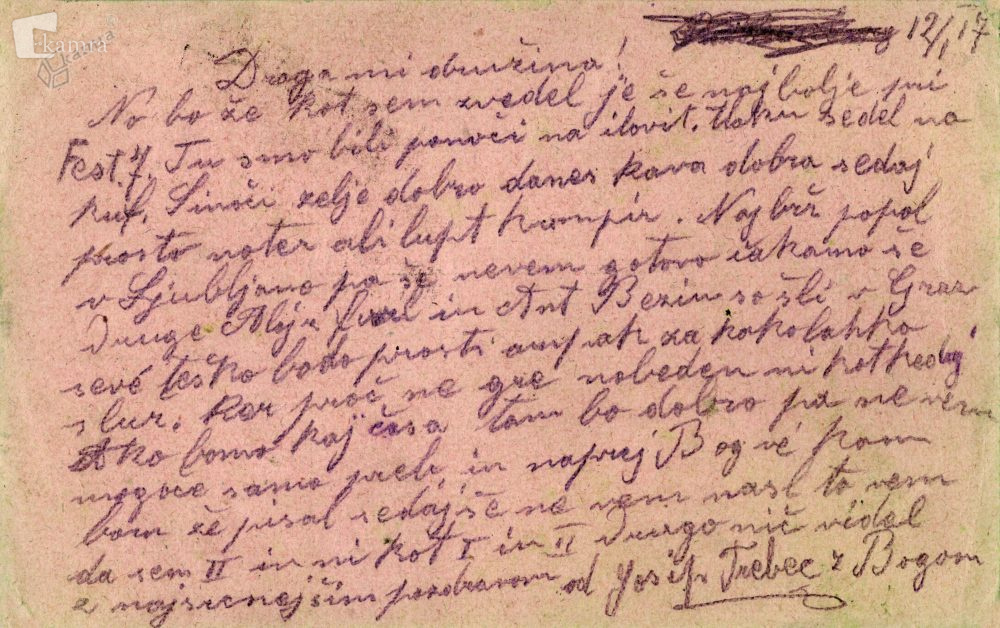 kamra
kamra
12/I 17
Draga mi družina!
No bo že kot sem zvedel je še najbolje pri
Fest. 4. Tu smo bili ponoči na ilovit. tloku sedel na
kuf. Sinoči zelje dobro danes kava dobra sedaj
prosto noter ali lupt krumpir. Najbrž popol
v Ljubljano pa še nevem gotovo čakamo še
druge Alojz in Ant Bezin so šli v Graz
sevé teško bodo prosti ampak za kako lahko
služ. ker proč ne gre nobeden ni kot kedaj
Ako bomo kaj časa tam bo dobro pa ne vem
mogoče samo preb. in naprej Bog vé kam
bom že pisal sedaj še ne vem nasl to vem
da sem II in ni kot I in II Drugo nič videl
z najsrčnejšim pozdravom od Josip Trebec z Bogom